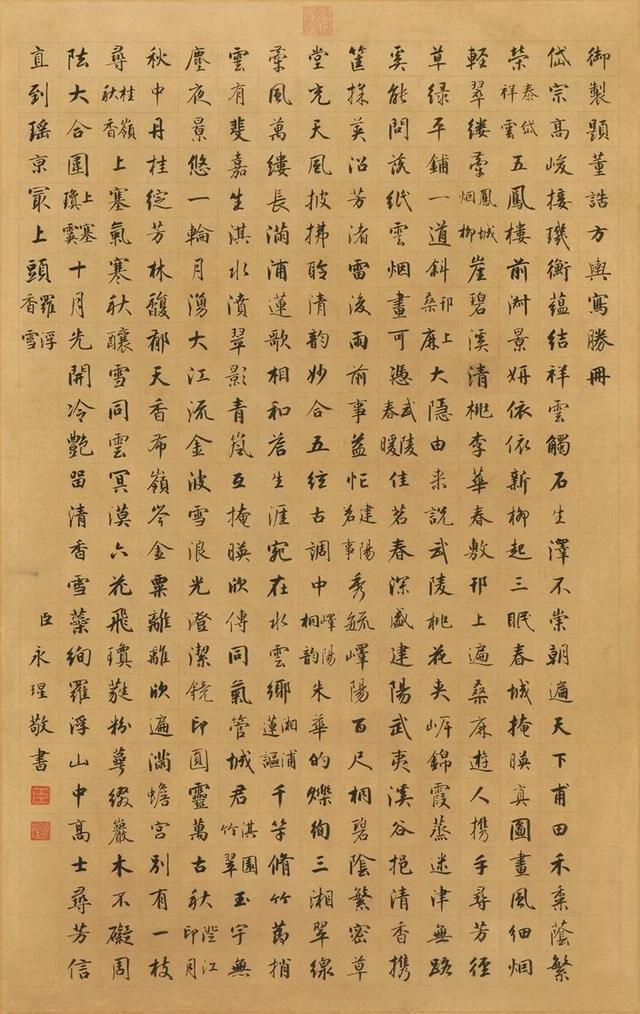 御製題董誥方輿寫勝冊
岱宗高峻接璣衡蘊結祥雲觸石生澤不崇朝遍天下甫田禾黍蔭繁
榮泰岱祥雲五鳳樓前淑景妍依依新柳起三眠春城掩暎真圖畫風細烟
輕翠縷牽鳳城烟柳崖碧溪清桃李華春敷邗上遍桑麻遊人攜手尋芳徑
草綠平鋪一道斜邗上桑麻大隱由来說武陵桃花夾岸錦霞蒸迷津無路
奚能問落紙雲烟畫可憑武陵春暖佳茗春深盛建陽武夷溪谷挹清香攜
筐採英沿芳渚雷後雨前事益忙建陽茗事秀毓嶧陽百尺桐碧陰繁密草
堂充天風披拂聆清韵妙合五絃古調中嶧陽桐韵朱華的爍絢三湘翠線
牽風萬縷長滿浦蓮歌相和答生涯宛在水雲鄉湘浦蓮謳千竿脩竹蔚捎
雲有斐嘉生淇水濆翠影青嵐互掩暎欣傳同氣管城君淇園竹翠玉宇無
塵夜景悠一輪月湧大江流金波雪浪光澄潔鏡印圓靈萬古秋澄江印月
秋中丹桂綻芳林馥郁天香布嶺岑金粟離離欣遍滿蟾宮別有一枝
尋桂嶺秋香上塞氣寒秋釀雪同雲冥漠六花飛瓊蕤粉萼綴巖木不礙周
阹大合圍上塞瓊霙十月先開冷艷留清香雪蘂絢羅浮山中高士尋芳信
直到瑤京冣上頭羅浮香雪 臣永瑆敬書